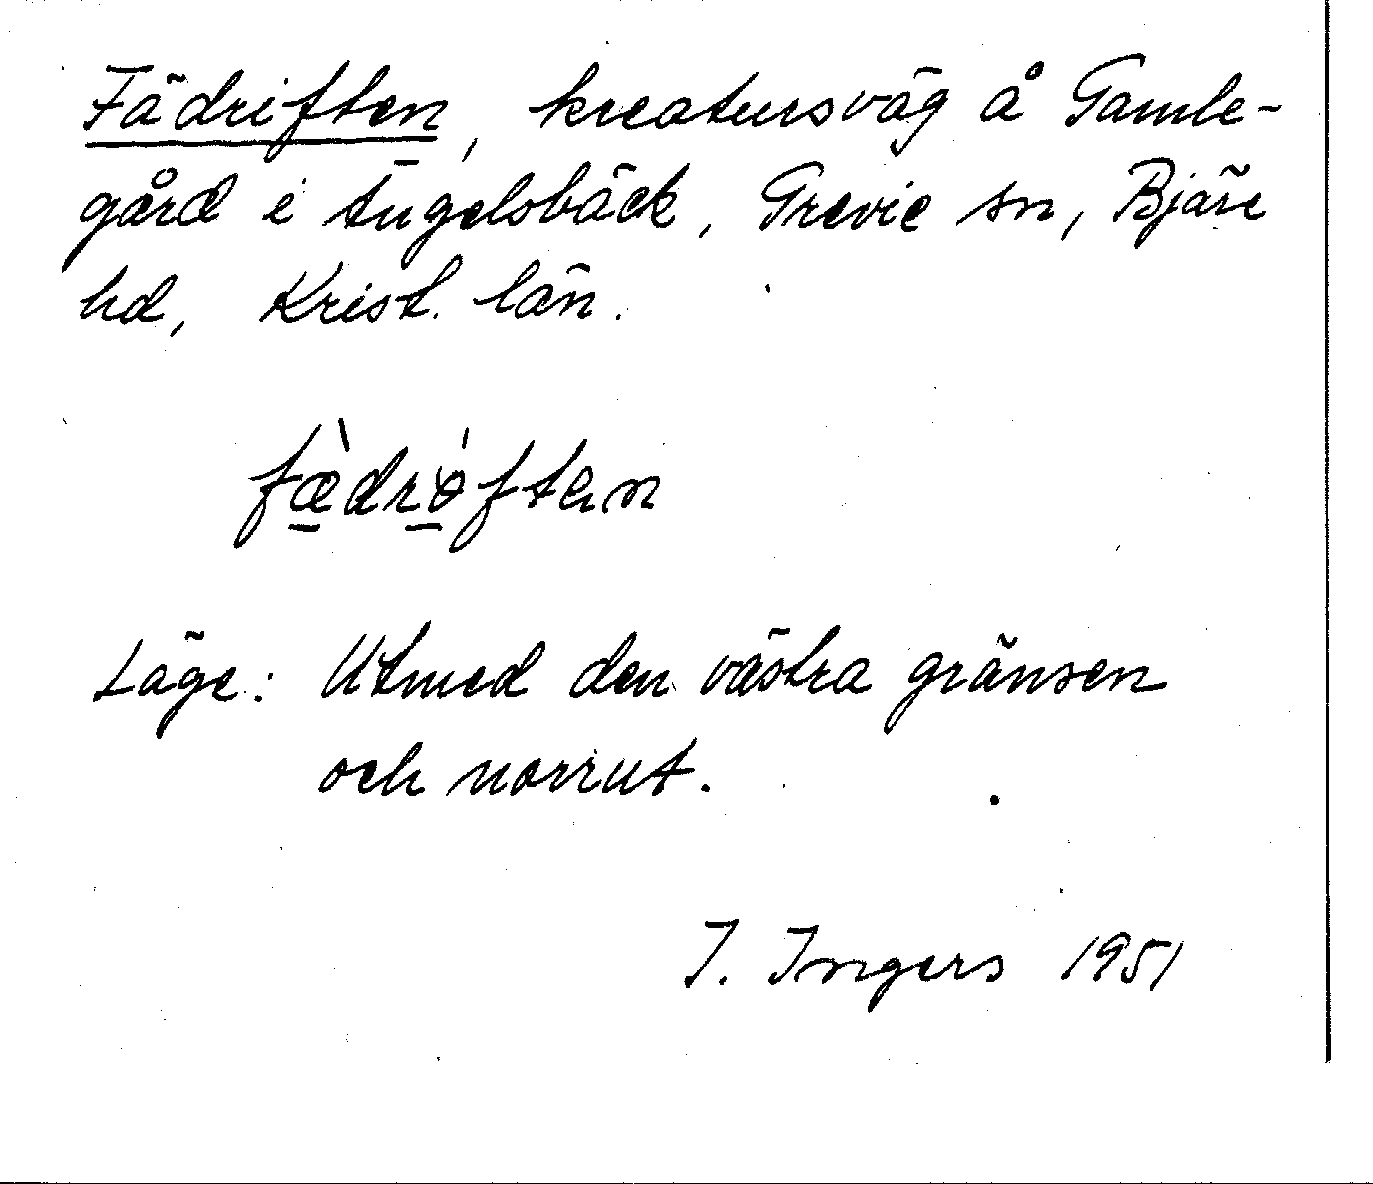 Fädriften, kreatursväg å Gamle-
gård i Ängelsbäck, Grevie sn, Bjäre
hd, Krist. län.
fæ̀drǿften
Läge: Utmed den västra gränsen
och norrut.
I. Ingers 1951